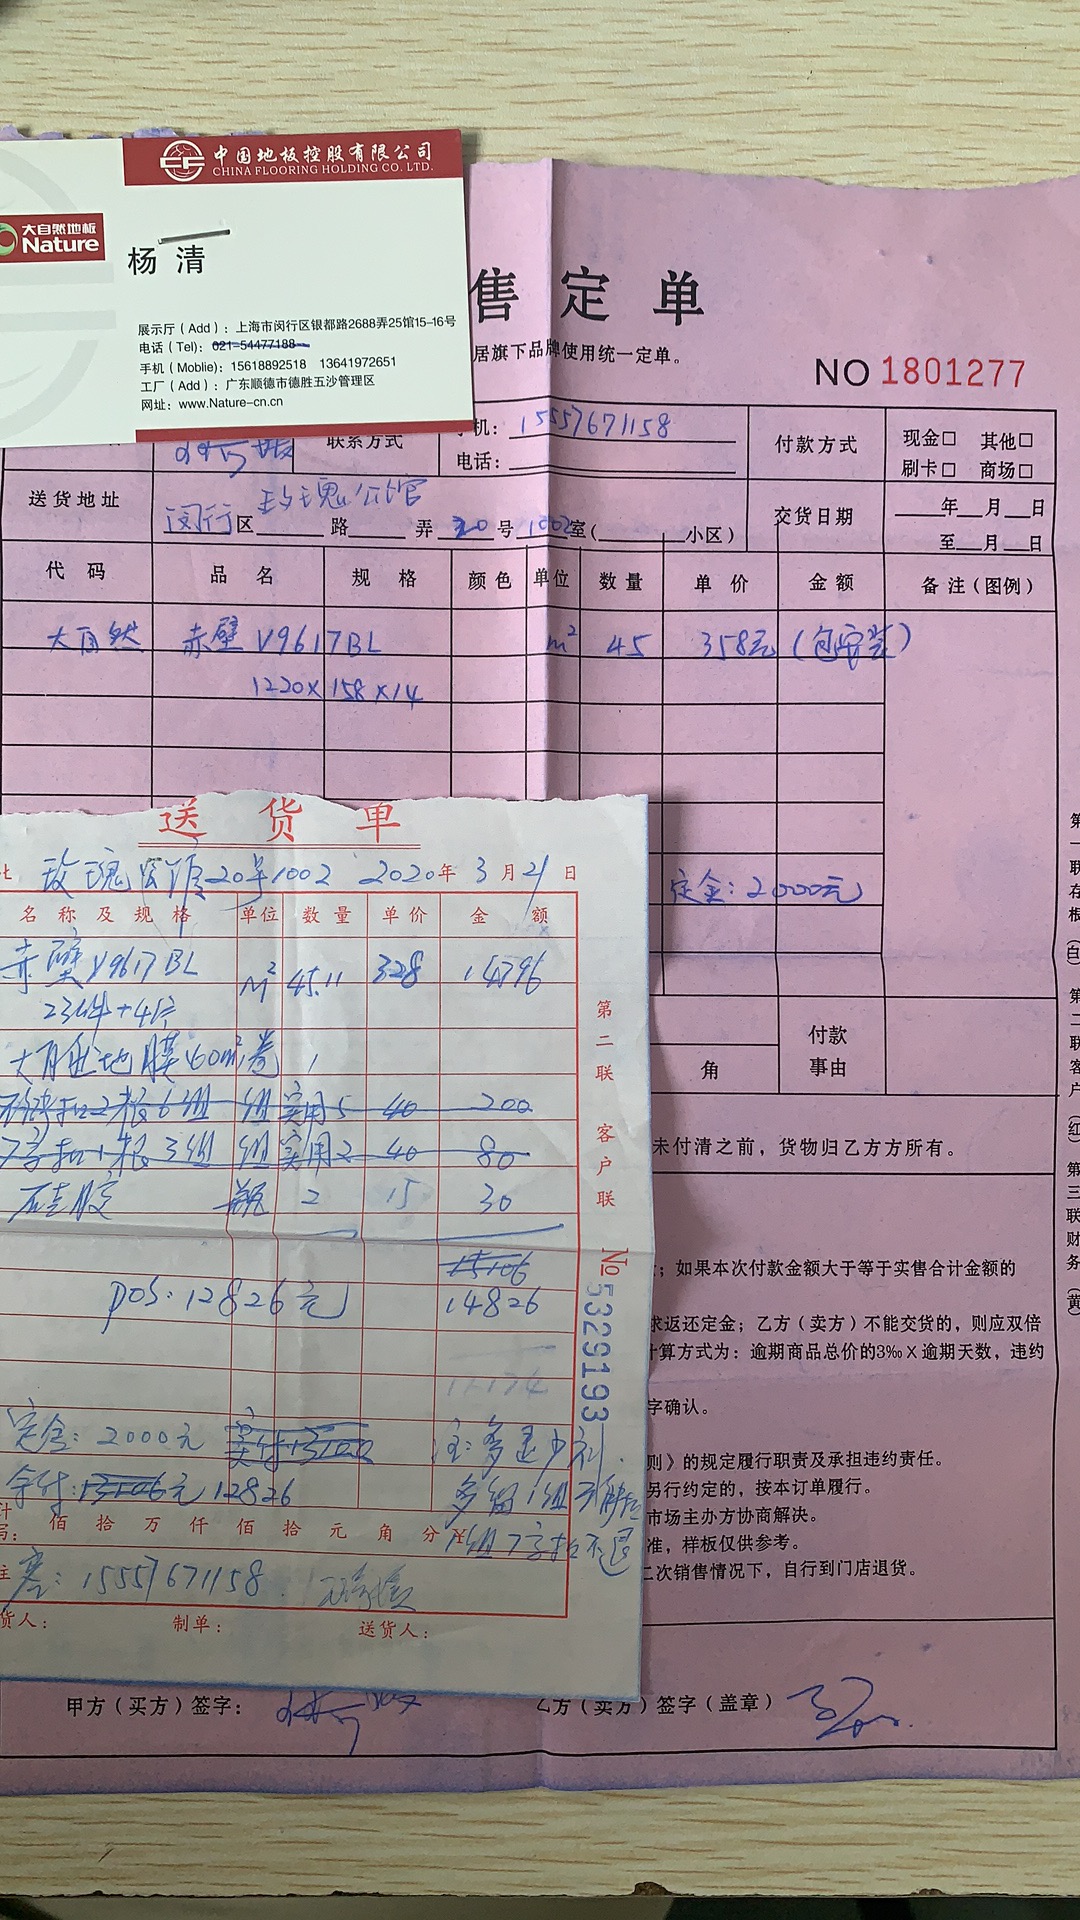 中国地板控股有限公司
CHINA FLOORING HOLDING CO. LTD.
大自然地板
Nature
杨 清
展示厅（Add）：上海市闵行区银都路2688弄25馆15-16号
电话（Tel）：021-54477188
手机（Moblie）：15618892518 13641972651
工厂（Add）：广东顺德市德胜五沙管理区
网址：www.Nature-cn.cn
售 定 单
居旗下品牌使用统一定单。
NO 1801277
联系方式
机：15557671158
电话：
付款方式
现金□ 其他□
刷卡□ 商场□
送货地址
玫瑰公馆
闵行区 路 弄 20 号 1002 室（ 小区）
交货日期
年 月 日
至 月 日
代 码 品 名 规 格 颜 色 单 位 数 量 单 价 金 额 备 注（图例）
大自然 赤壁 V9617BL m² 45 358元（包安装）
1220×158×14
定金：2000元
角
付款
事由
未付清之前，货物归乙方方所有。
；如果本次付款金额大于等于实售合计金额的
求返还定金；乙方（卖方）不能交货的，则应双倍
计算方式为：逾期商品总价的3‰×逾期天数，违约
字确认。
则》的规定履行职责及承担违约责任。
另行约定的，按本订单履行。
市场主办方协商解决。
准，样板仅供参考。
二次销售情况下，自行到门店退货。
甲方（买方）签字：
乙方（卖方）签字（盖章）
第一联存根（白）
第二联客户（红）
第三联财务（黄）
送 货 单
玫瑰公馆20号1002 2020年 3 月 21 日
名 称 及 规 格 单位 数 量 单 价 金 额
赤壁V9617BL m² 45.11 328 14796
23件+4片
大自然地膜60m² 卷 1
2根6组 组 实用5 40 200
7字扣1根3组 组 实用2 40 80
硅胶 瓶 2 15 30
15106
POS：12826元 14826
定金：2000元
注：多退少补.
余付：13106元 12826
组7字扣不退
佰 拾 万 仟 佰 拾 元 角 分
15557671158
货人： 制单： 送货人：
第二联 客户联
No 5329193